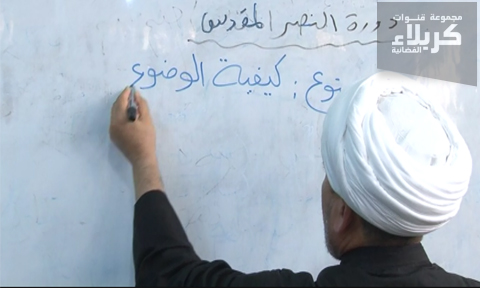 مجموعة قنوات
كربلاء
الفضائية
دورة النصر المقدس
: كيفية الوضوء